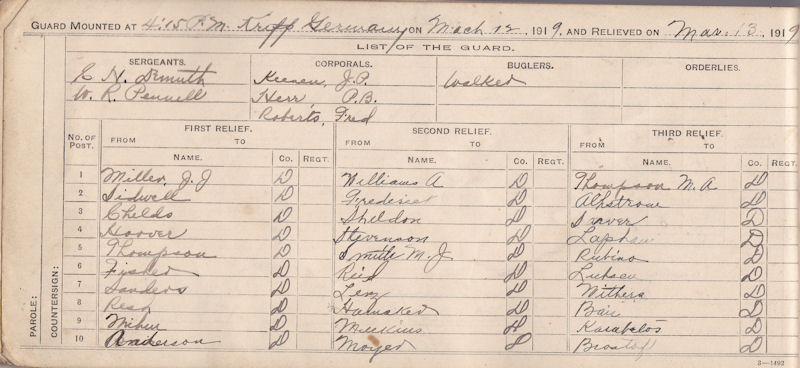 GUARD MOUNTED AT 4:15 P.M. Kropp Germany ON Mach 12, 1919, AND RELIEVED ON Mar. 13, 1919
LIST OF THE GUARD.
SERGEANTS. CORPORALS. BUGLERS. ORDERLIES.
C. N. Demuth Keenen, J.P. Walker
W. R. Pennell Herr, P.B.
Roberts, Fred
No. OF POST. FIRST RELIEF. SECOND RELIEF. THIRD RELIEF.
FROM TO FROM TO FROM TO
NAME. Co. REGT. NAME. Co. REGT. NAME. Co.
1 Miller, J. J D Williams A D Thompson M. A D
2 Sidwell D D D
3 Childs D Sheldon D D
4 Hoover D Stevenson D D
5 Thompson D Smith M. J D Rubino D
6 Fisher D Reid D D
7 Sanders D Lenz D Withers D
8 Resh D D Bair D
9 D Meekins D Karabelos D
10 Anderson D Moyer D D
PAROLE:
COUNTERSIGN:
3—1492